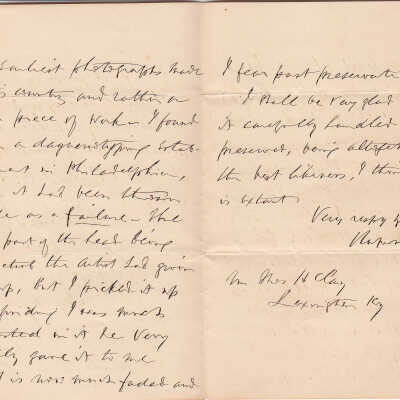 earliest photographs made
country and rather a
piece of work. I found
in a daguerreotyping estab-
in Philadelphia,
it had been thrown
as a failure - the
part of the head being
the artist had given
up, but I picked it up
I was much
in it he very
gave it to me
is now much faded and
I fear past preservati
I shall be very glad
it carefully handled
preserved, being
the best likeness, I thin
is extant
Very respy
Thos H Clay
Lexington Ky